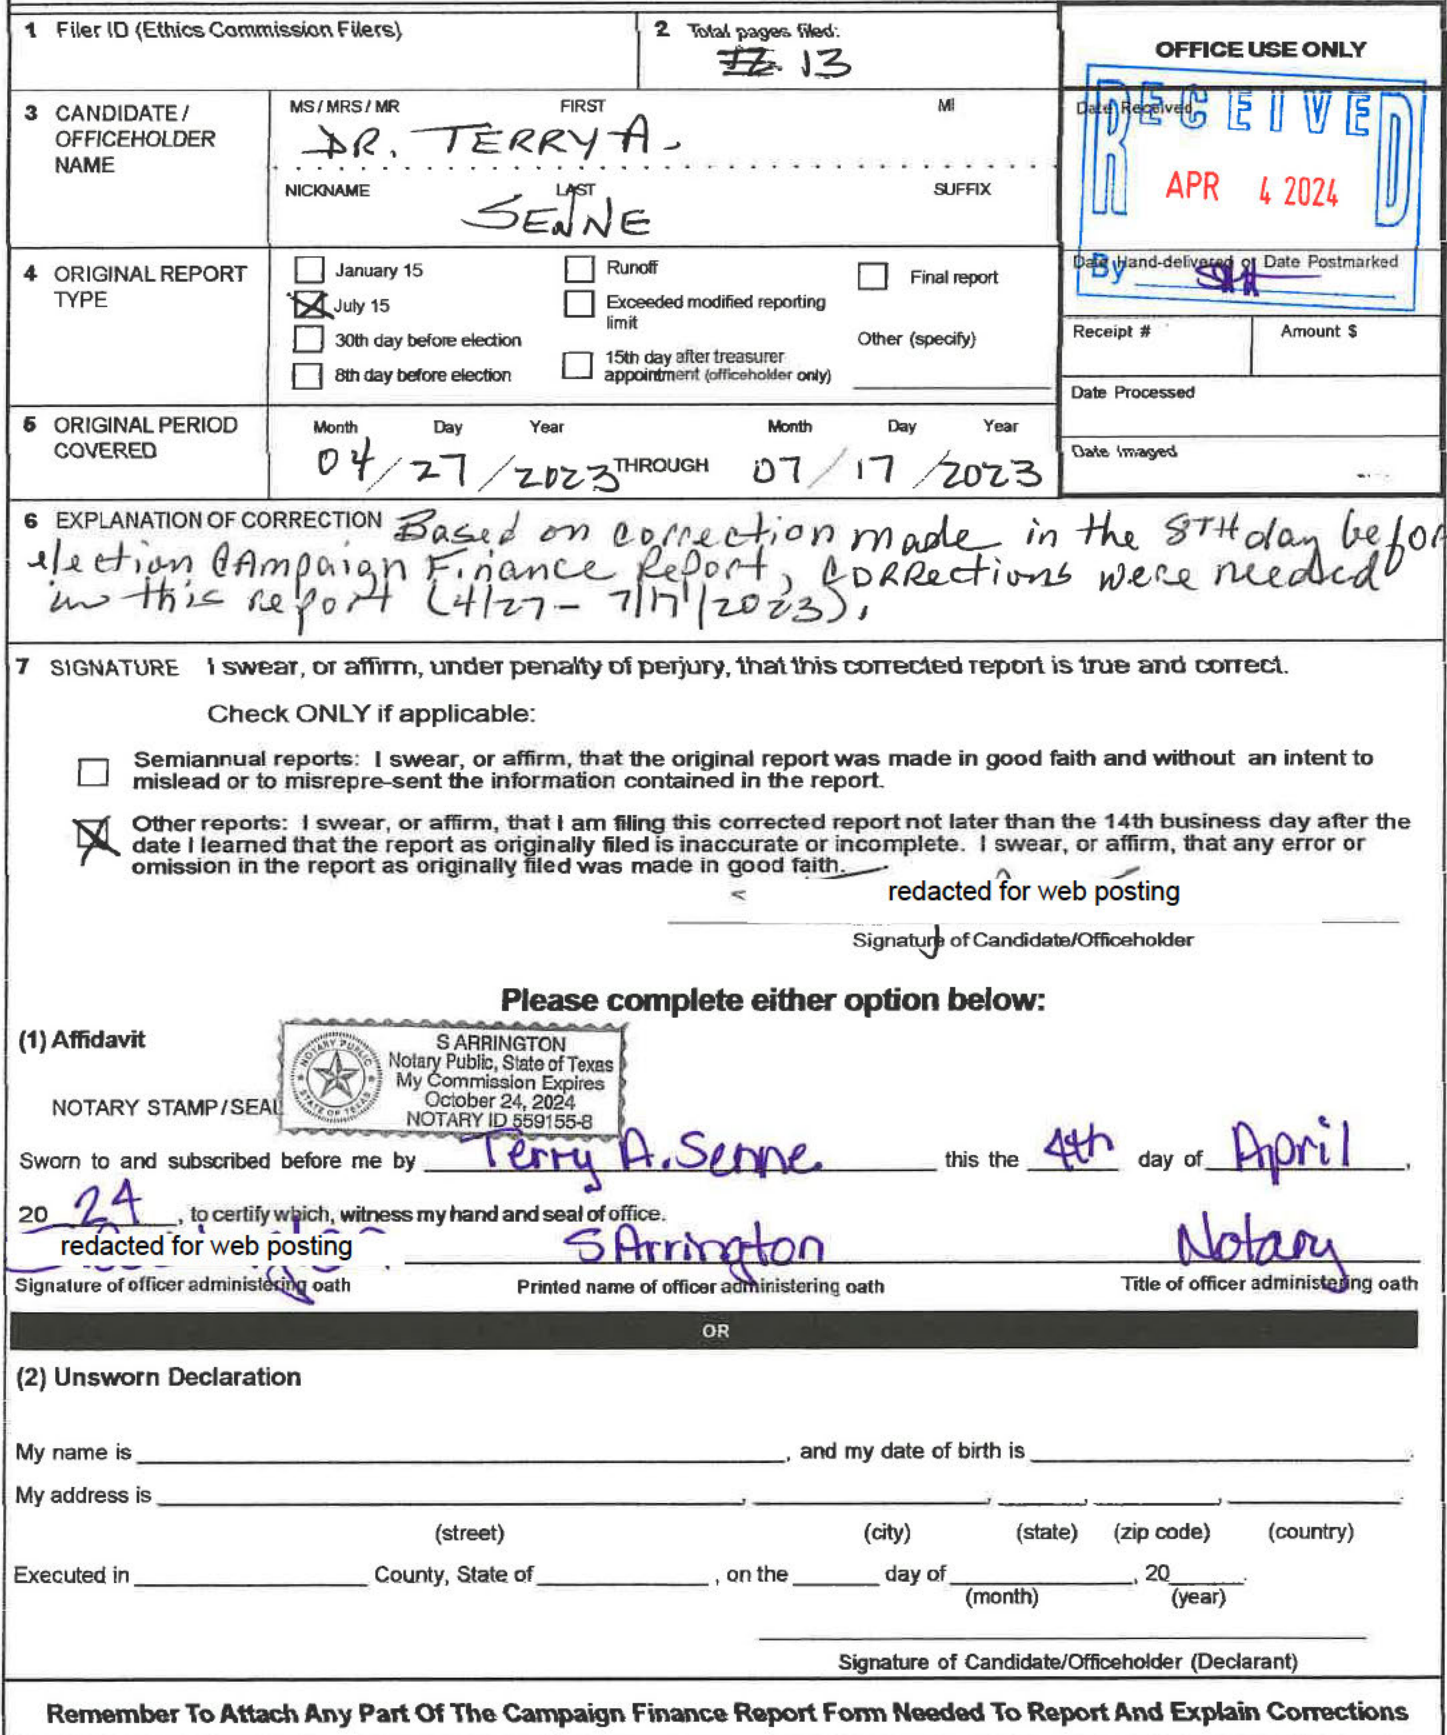 1 Filer ID (Ethics Commission Filers)
2 Total pages filed:
13
OFFICE USE ONLY
3 CANDIDATE / OFFICEHOLDER NAME
MS / MRS / MR FIRST MI
DR. TERRY A.
NICKNAME LAST SUFFIX
SENNE
Date Received
RECEIVED
APR 4 2024
By
Date Hand-delivered or Date Postmarked
Receipt # Amount $
Date Processed
Date Imaged
4 ORIGINAL REPORT TYPE
January 15
July 15
30th day before election
8th day before election
Runoff
Exceeded modified reporting limit
15th day after treasurer appointment (officeholder only)
Final report
Other (specify)
5 ORIGINAL PERIOD COVERED
Month Day Year Month Day Year
04 / 27 / 2023 THROUGH 07 / 17 / 2023
6 EXPLANATION OF CORRECTION Based on correction made in the 8TH day befor
election CAmpaign Finance Report, CORRections were needed
in this report (4/27 - 7/17/2023).
7 SIGNATURE I swear, or affirm, under penalty of perjury, that this corrected report is true and correct.
Check ONLY if applicable:
Semiannual reports: I swear, or affirm, that the original report was made in good faith and without an intent to
mislead or to misrepre-sent the information contained in the report.
Other reports: I swear, or affirm, that I am filing this corrected report not later than the 14th business day after the
date I learned that the report as originally filed is inaccurate or incomplete. I swear, or affirm, that any error or
omission in the report as originally filed was made in good faith.
redacted for web posting
Signature of Candidate/Officeholder
Please complete either option below:
(1) Affidavit
NOTARY PUBLIC
STATE OF TEXAS
S ARRINGTON
Notary Public, State of Texas
My Commission Expires
October 24, 2024
NOTARY ID 559155-8
NOTARY STAMP / SEAL
Sworn to and subscribed before me by Terry A. Senne this the 4th day of April,
20 24, to certify which, witness my hand and seal of office.
redacted for web posting S Arrington Notary
Signature of officer administering oath Printed name of officer administering oath Title of officer administering oath
OR
(2) Unsworn Declaration
My name is , and my date of birth is .
My address is , , , , .
(street) (city) (state) (zip code) (country)
Executed in County, State of , on the day of , 20 .
(month) (year)
Signature of Candidate/Officeholder (Declarant)
Remember To Attach Any Part Of The Campaign Finance Report Form Needed To Report And Explain Corrections